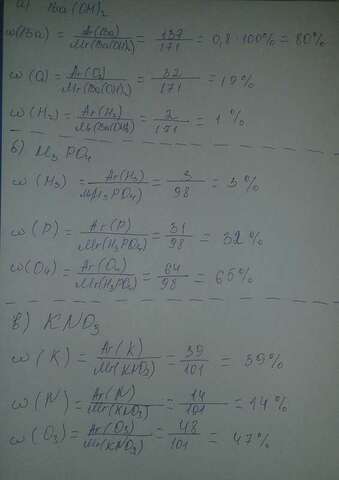 а) Ba(OH)₂
w(Ba) = Ar(Ba)/Mr(Ba(OH)₂) = 137/171 = 0,8·100% = 80%
w(O) = Ar(O₂)/Mr(Ba(OH)₂) = 32/171 = 19%
w(H₂) = Ar(H₂)/Mr(Ba(OH)₂) = 2/171 = 1%
б) H₃PO₄
w(H₃) = Ar(H₃)/Mr(H₃PO₄) = 3/98 = 3%
w(P) = Ar(P)/Mr(H₃PO₄) = 31/98 = 32%
w(O₄) = Ar(O₄)/Mr(H₃PO₄) = 64/98 = 65%
в) KNO₃
w(K) = Ar(K)/Mr(KNO₃) = 39/101 = 39%
w(N) = Ar(N)/Mr(KNO₃) = 14/101 = 14%
w(O₃) = Ar(O₃)/Mr(KNO₃) = 48/101 = 47%